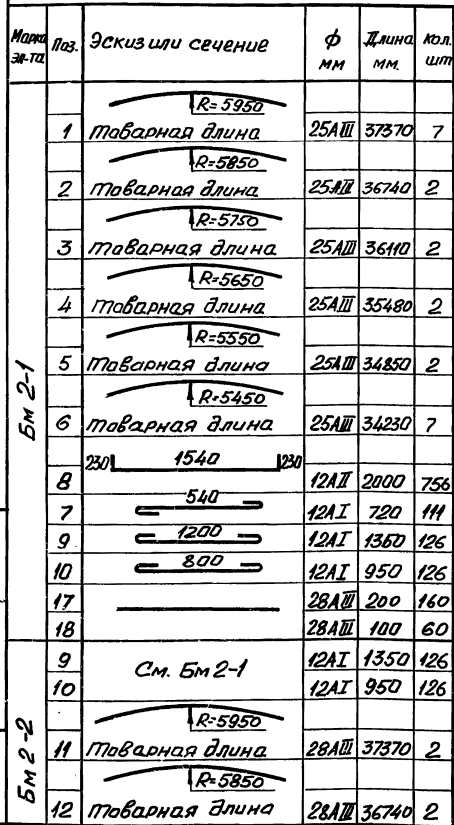 Марка эл-та Поз. Эскиз или сечение ф мм Длина мм. кол. шт
Бм 2-1
R=5950
1 товарная длина 25АIII 37370 7
R=5850
2 товарная длина 25АIII 36740 2
R=5750
3 товарная длина 25АIII 36110 2
R=5650
4 товарная длина 25АIII 35480 2
R=5550
5 товарная длина 25АIII 34850 2
R=5450
6 товарная длина 25АIII 34230 7
230 1540 230
8 12АII 2000 756
540
7 12АI 720 111
1200
9 12АI 1350 126
800
10 12АI 950 126
17 28АIII 200 160
18 28АIII 100 60
Бм 2-2
9 См. Бм 2-1 12АI 1350 126
10 12АI 950 126
R=5950
11 товарная длина 28АIII 37370 2
R=5850
12 товарная длина 28АIII 36740 2